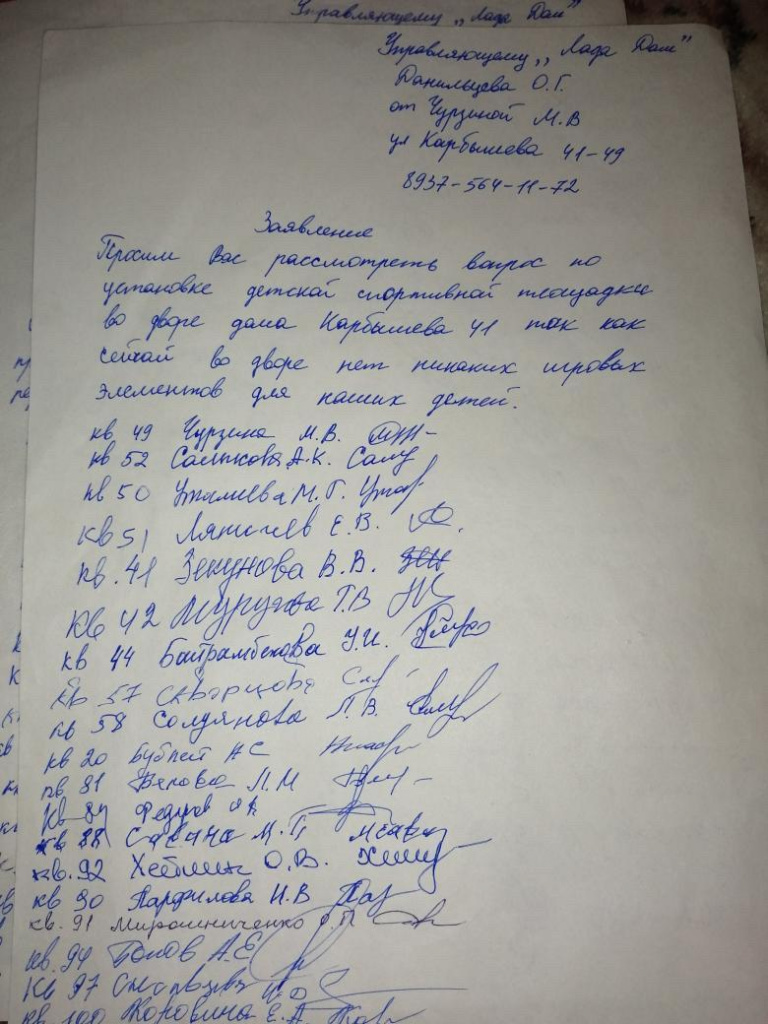 Управляющему „Лада Дом"
Управляющему „Лада Дом"
Данильцева О.Г.
от Чурзиной М.В
ул Карбышева 41-49
8937-564-11-72
Заявление
Просим Вас рассмотреть вопрос по
установке детской спортивной площадки
во дворе дома Карбышева 41 так как
сейчай во дворе нет никаких игровых
элементов для наших детей.
кв 49 Чурзина М.В.
кв 52 Салыкова А.К.
кв 50 М.Г.
кв 51 Е.В.
кв. 41 Зекунова В.В.
кв 42 Т.В
кв 44 Байрамбекова У.И.
кв 57 Скворцова
кв 58 Солдянова Л.В.
кв 20 АС
кв. 81 Белова Л.М
кв 84 Федуров
кв 88 Савина М.П
кв. 92 О.В.
кв 90 Парфилова Н.В
кв. 91 Мирошниченко
кв. 94 Попов А.Е
кв 97
кв 100 Коровина Е.А.